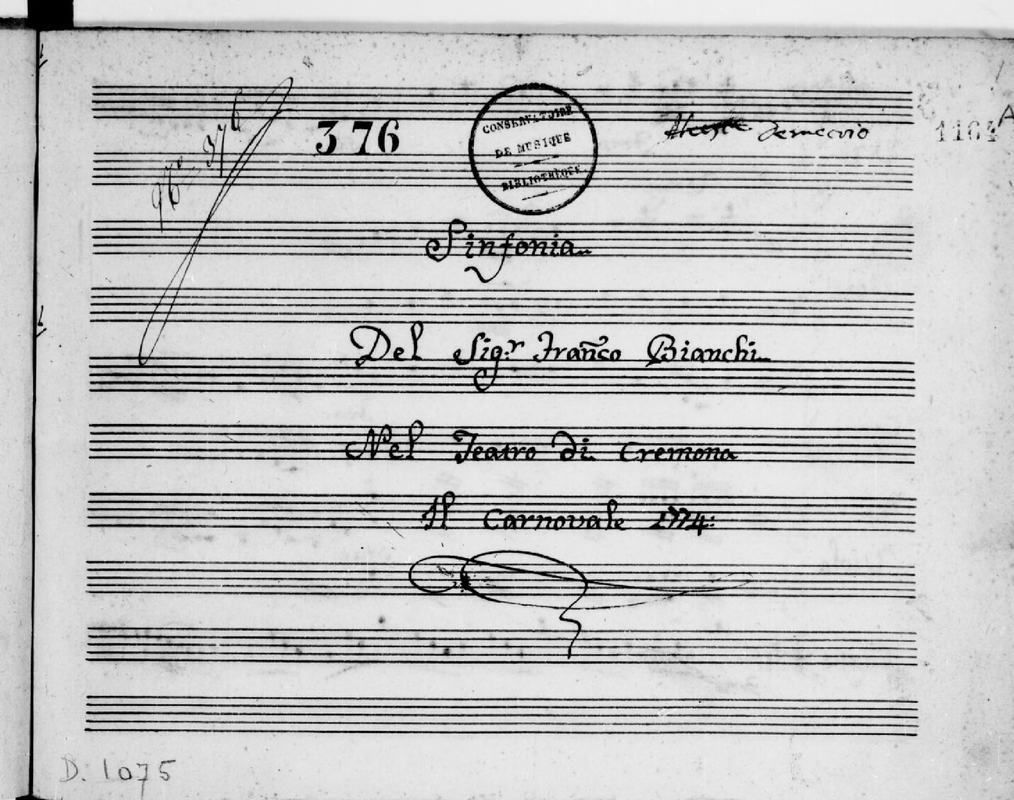 376
CONSERVATOIRE
DE MUSIQUE
BIBLIOTHÈQUE
Demetrio
1164 A
Sinfonia
Del Sig.r Fran̄co Bianchi
Nel Teatro di Cremona
Il Carnovale 1774:
D. 1075